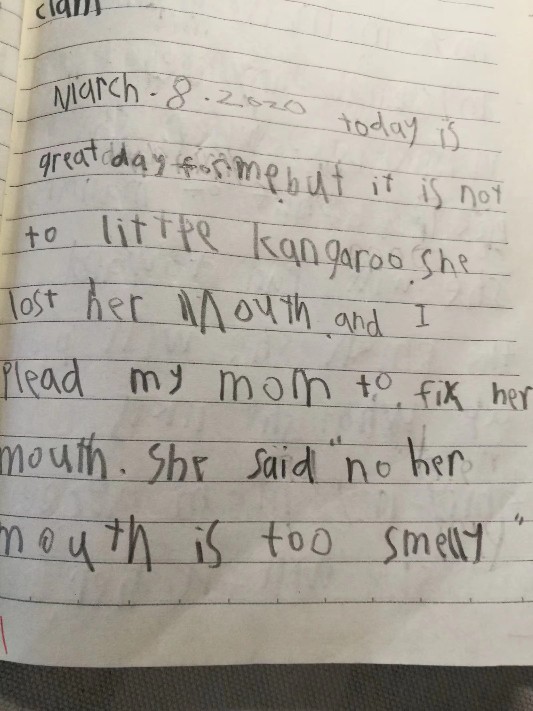 clam
March. 8. 2020 today is
great day for me but it is not
to little kangaroo. she
lost her Mouth and I
Plead my mom to fix her
mouth. She said "no her
mouth is too smelly"